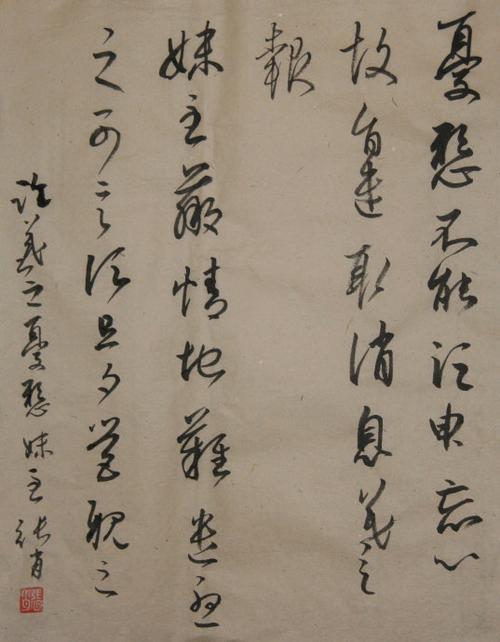 憂懸不能須臾忘心
故旨遣取消息羲之
報
妹至羸情地難遣憂
之可言須旦夕營視之
臨羲之憂懸妹至 張肖